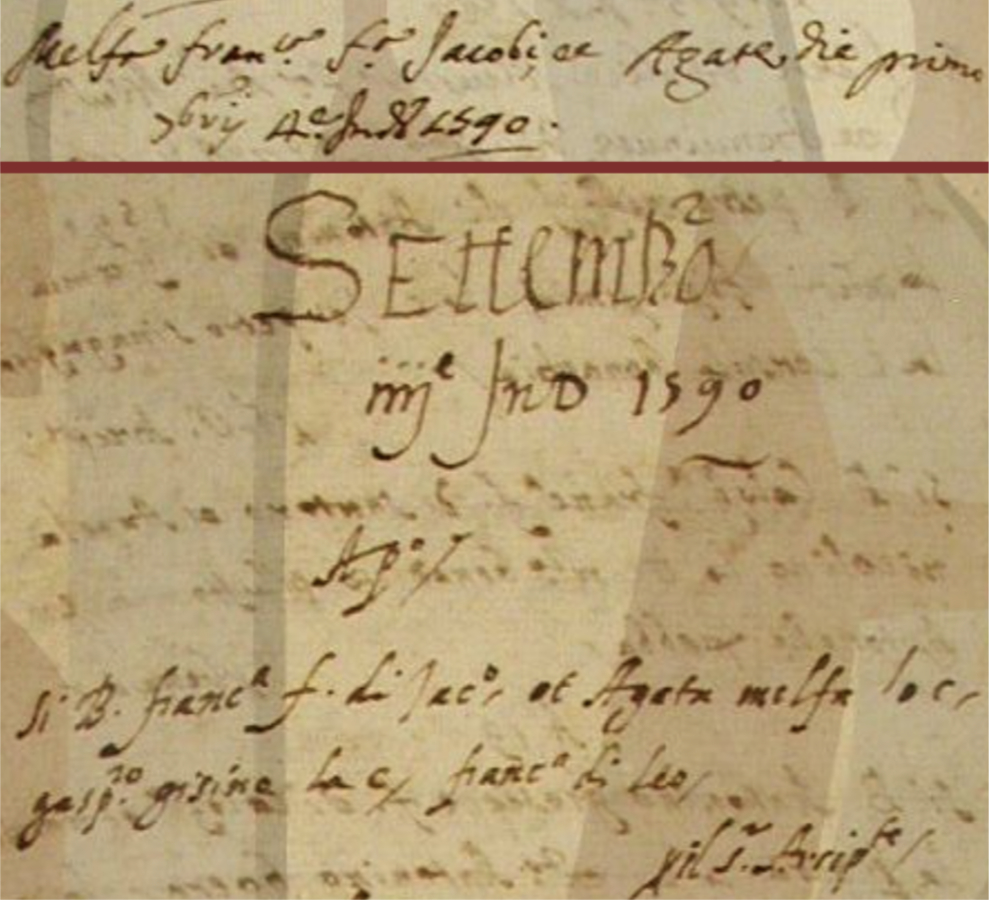 Melfa fran.co f.o Jacobi et Agate die primo
7brij 4.e Ind. 1590.
SEttemb.o
iiij.e Ind 1590
A p.o
Si B. franc.a f. di Jac.o, et Agata melfa lo c,
gasp.ro gisine la c, franc.a di leo,